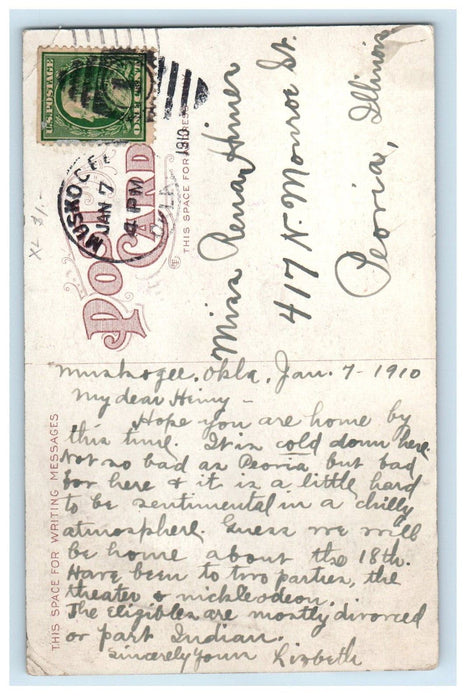 U.S. POSTAGE
ONE CENT
MUSKOGEE
JAN 7
4 PM
OKLA.
1910
XL $1.
POST CARD
THIS SPACE FOR ADDRESS
Miss Rena Himer
417 N. Monroe St.
Peoria, Illinois
THIS SPACE FOR WRITING MESSAGES
Muskogee, Okla, Jan. 7 - 1910
My dear Heiny -
Hope you are home by
this time. It is cold down here.
Not so bad as Peoria but bad
for here & it is a little hard
to be sentimental in a chilly
atmosphere. Guess we will
be home about the 18th.
Have been to two parties, the
theater & nickleodeon.
The Eligibles are mostly divorced
or part Indian.
Sincerely Yours Lizbeth